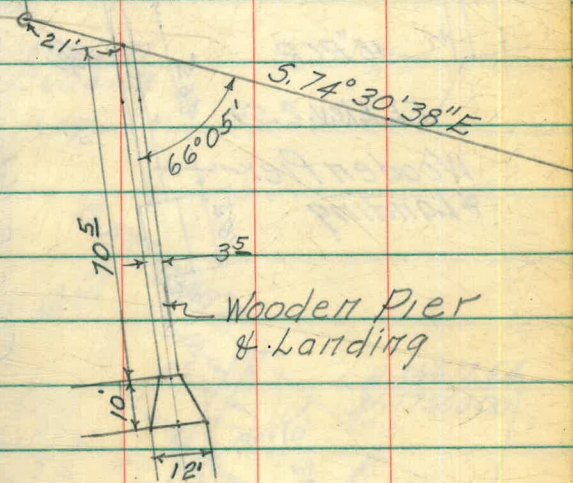 21'
S. 74° 30' 38" E
66° 05'
70 5
3 5
Wooden Pier
& Landing
10'
12'